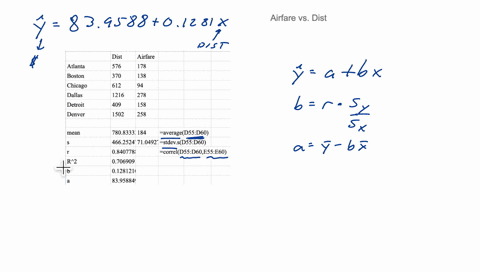 ŷ = 83.9588 + 0.1281 x
$
DIST
Airfare vs. Dist
Dist Airfare
Atlanta 576 178
Boston 370 138
Chicago 612 94
Dallas 1216 278
Detroit 409 158
Denver 1502 258
mean 780.8333 184 =average(D55:D60)
s 466.2524 71.0492 =stdev.s(D55:D60)
r 0.840778 =correl(D55:D60,E55:E60)
R^2 0.706909
b 0.128121
a 83.95884
ŷ = a + bx
b = r · Sy/Sx
a = ȳ - bx̄